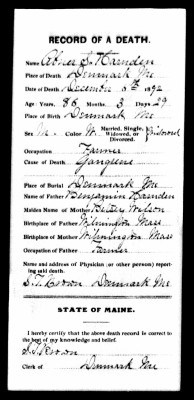 RECORD OF A DEATH.
Name Abner S. Harnden
Place of Death Denmark Me
Date of Death December 5th 1892
Age: Years, 86 Months, 3 Days, 29
Place of Birth Denmark Me
Sex M. Color W. Married, Single, Widowed, or Divorced. Widowed
Occupation Farmer
Cause of Death Gangrene
Place of Burial Denmark Me
Name of Father Benjamin Harnden
Maiden Name of Mother Wilson
Birthplace of Father Wilmington Mass
Birthplace of Mother Wilmington Mass
Occupation of Father Farmer
Name and address of Physician (or other person) reporting said death.
Denmark Me
STATE OF MAINE.
I hereby certify that the above death record is correct to
the best of my knowledge and belief.
Clerk of Denmark Me